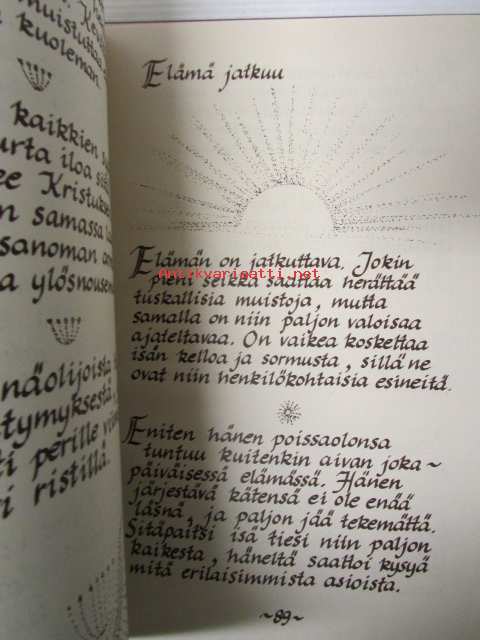 muistuttaa
kuoleman.
kaikkien
urta iloa
Kristuks
n samassa
sanoman
a ylösnousem
näolijoista
tymyksestä,
ti perille
ri ristillä.
Elämä jatkuu
Elämän on jatkuttava. Jokin
pieni seikka saattaa herättää
antikvariaatti.net
tuskallisia muistoja, mutta
samalla on niin paljon valoisaa
ajateltavaa. On vaikea koskettaa
isän kelloa ja sormusta, sillä ne
ovat niin henkilökohtaisia esineitä.
Eniten hänen poissaolonsa
tuntuu kuitenkin aivan joka-
päiväisessä elämässä. Hänen
järjestävä kätensä ei ole enää
läsnä, ja paljon jää tekemättä.
Sitäpaitsi isä tiesi niin paljon
kaikesta, häneltä saattoi kysyä
mitä erilaisimmista asioista.
~89~